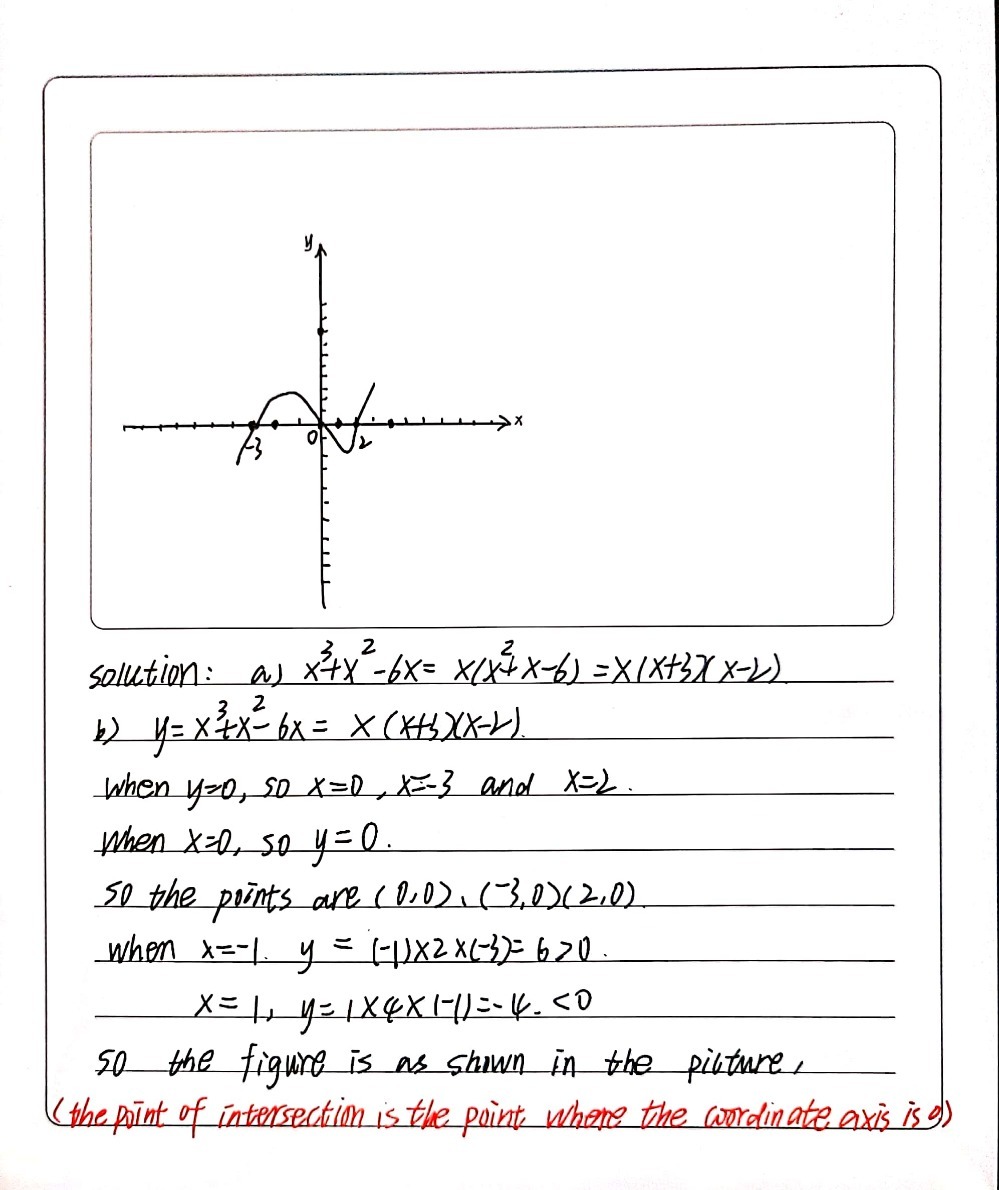 y
x
-3
0
2
solution: a) x³+x²-6x= x(x²+x-6) =x(x+3)(x-2)
b) y= x³+x²-6x= x(x+3)(x-2).
when y=0, so x=0, x=-3 and x=2.
when x=0, so y=0.
so the points are (0,0)、(-3,0)(2,0)
when x=-1. y = (-1)×2×(-3)= 6>0.
x=1, y=1×4×(-1)=-4.<0
so the figure is as shown in the picture,
(the point of intersection is the point where the coordinate axis is 0)